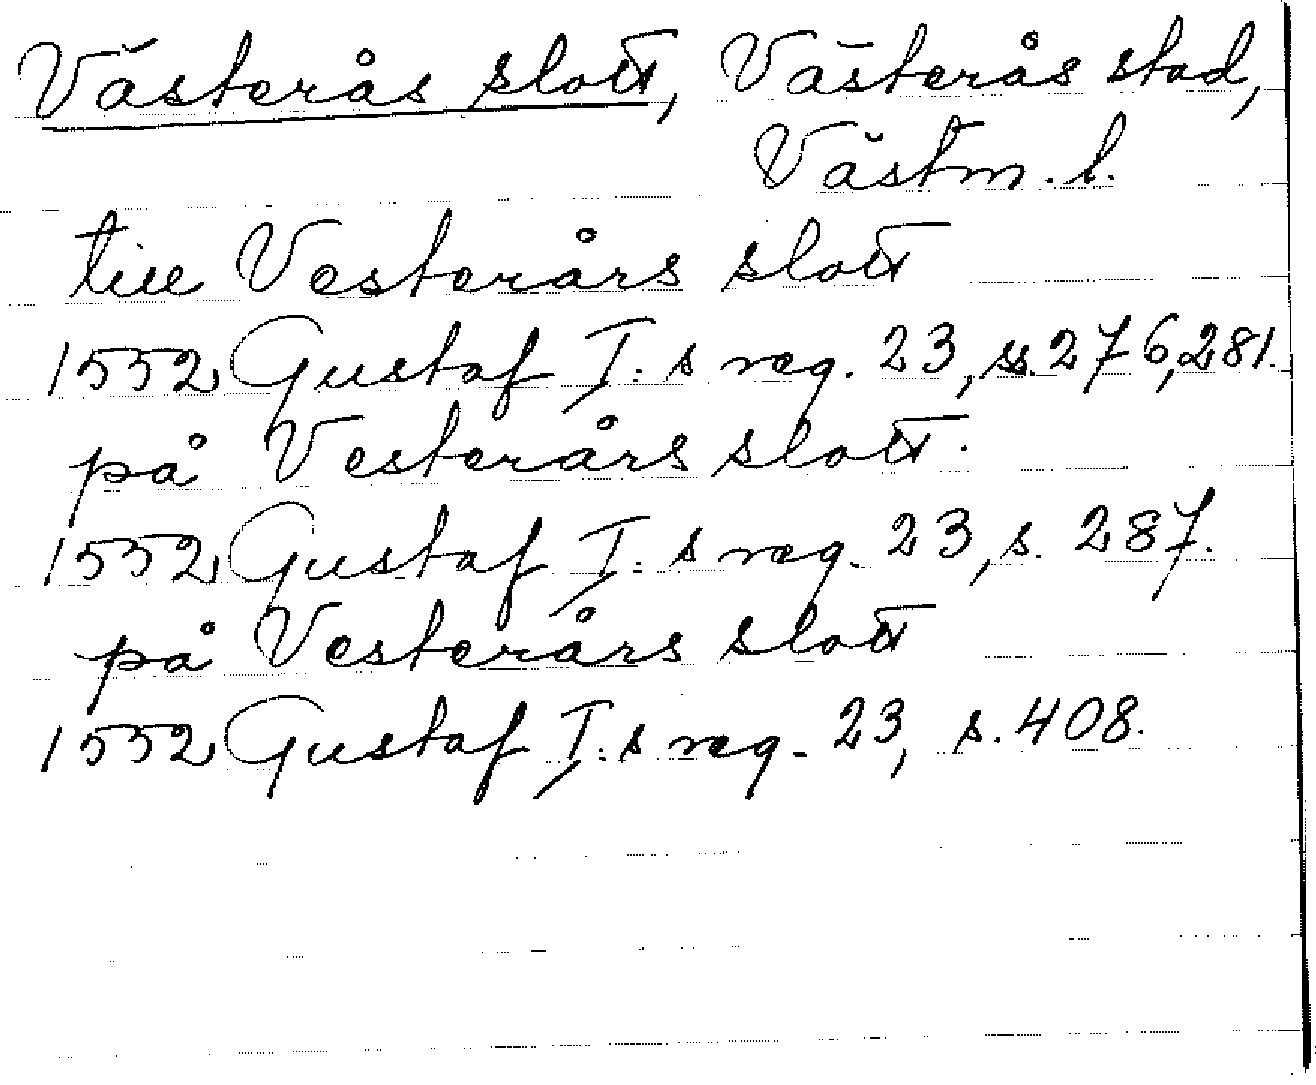 Västerås slott, Västerås stad,
Västm. l.
till Vesterårs slott
1552 Gustaf I:s reg. 23, ss. 276, 281.
på Vesterårs slott.
1552 Gustaf I:s reg. 23, s. 287.
på Vesterårs slott
1552 Gustaf I:s reg. 23, s. 408.